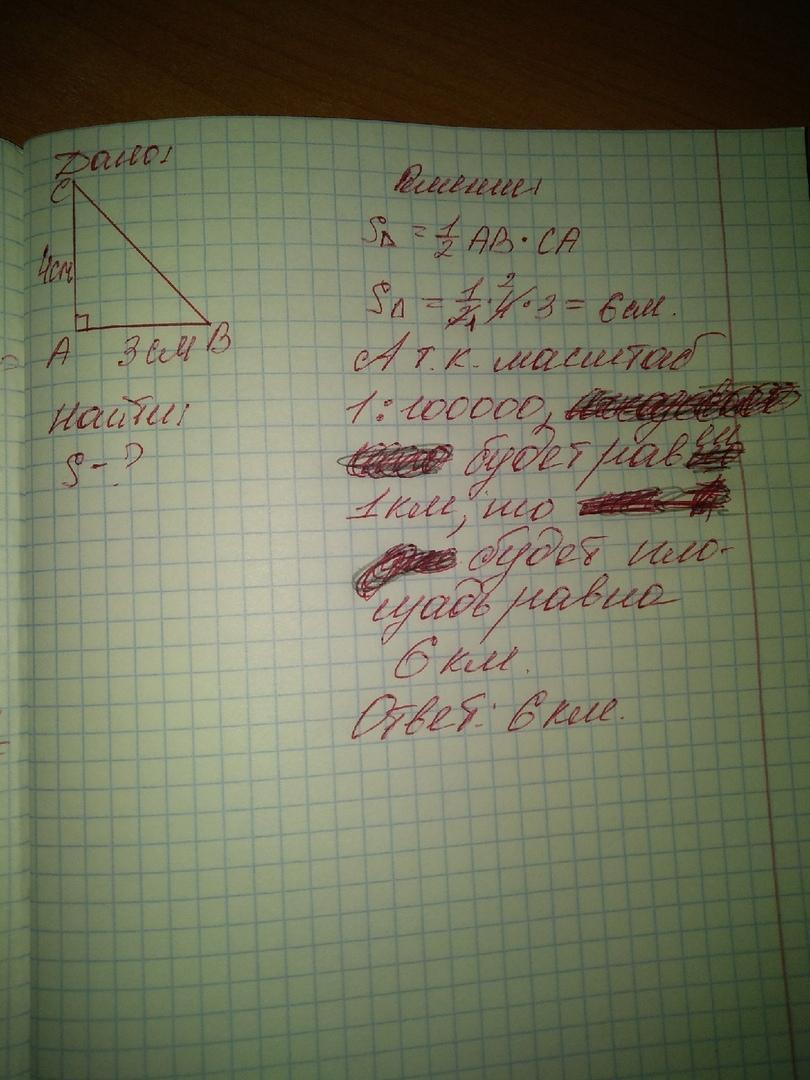 Дано:
C
4см
A 3 см B
Найти:
S - ?
Решение:
S∆ = 1/2 AB · CA
S∆ = 1/2 · 4 · 3 = 6 см.
А т.к. масштаб
1:100000,
будет равен
1 км, то
будет пло-
щадь равна
6 км.
Ответ: 6 км.